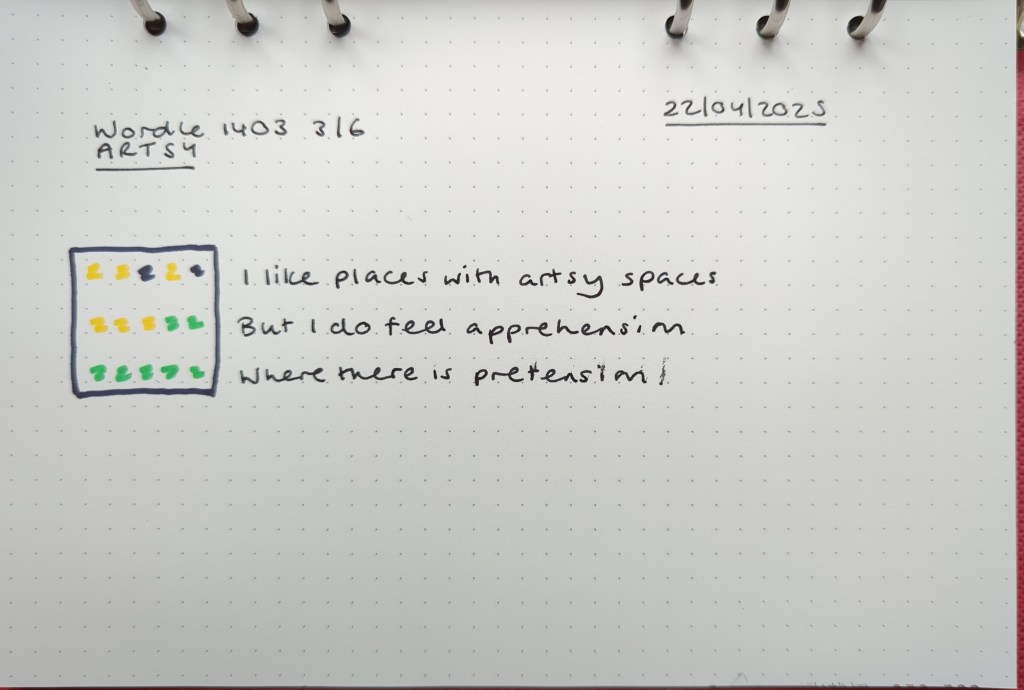 22/04/2025
Wordle 1403 3/6
ARTSY
I like places with artsy spaces
But I do feel apprehension
Where there is pretension!